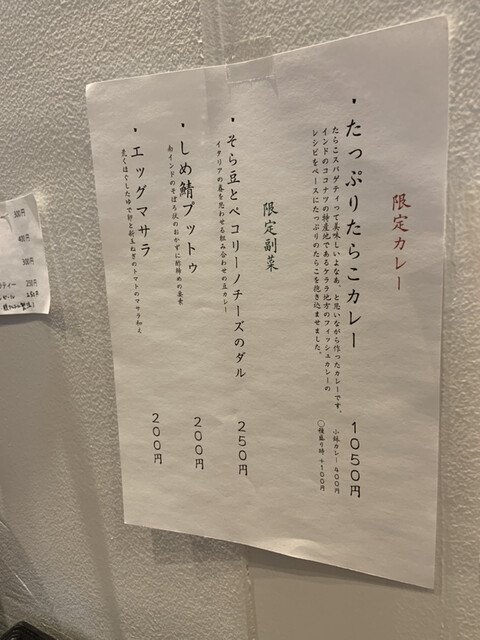 限定カレー
・たっぷりたらこカレー 1050円
たらこスパゲティって美味しいよなあ、と思いながら作ったカレーです。
インドのココナツの特産地であるケララ地方のフィッシュカレーの
レシピをベースにたっぷりのたらこを抱き込ませました。
小鉢カレー 400円
◯種盛り時 +100円
限定副菜
・そら豆とペコリーノチーズのダル 250円
イタリアの春を思わせる組み合わせの豆カレー
・しめ鯖プットゥ 200円
南インドのそぼろ状のおかずに酢締めの
・エッグマサラ 200円
荒くほぐしたゆで卵と新玉ねぎのトマトのマサラ和え
300円
400円
300円
ティー 250円